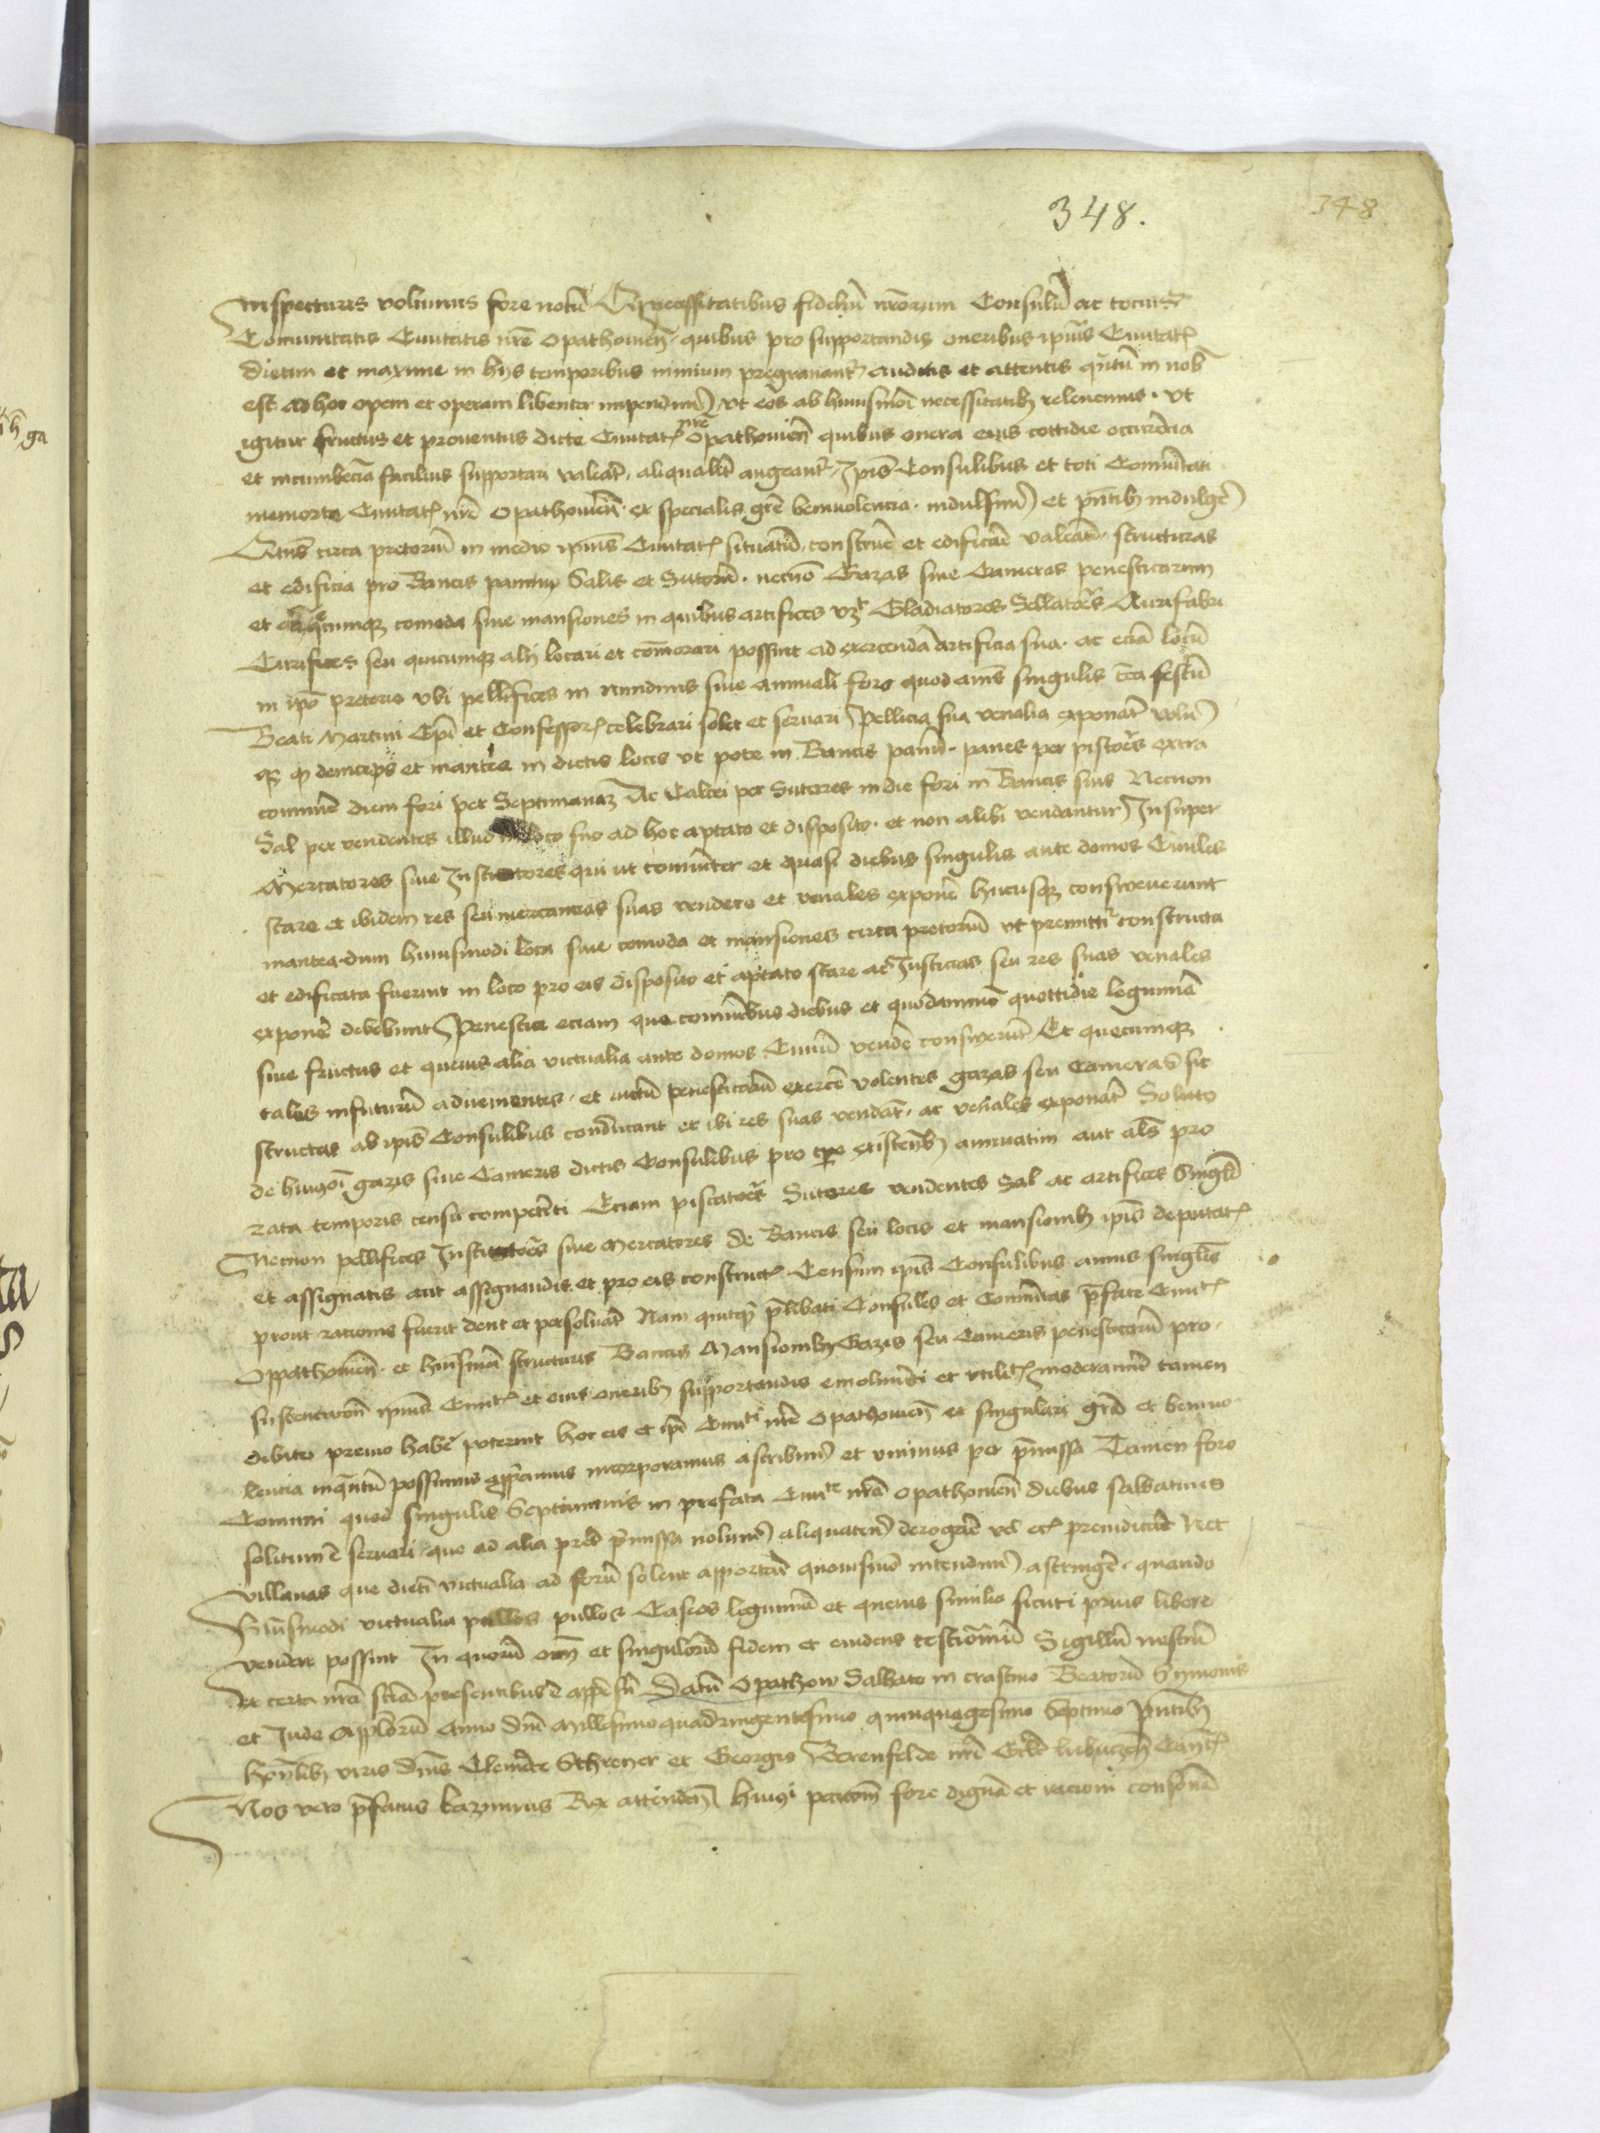 348.
348
Inspecturis volumus fore notũ Q necessitatibus fideliũ nr̃orum Consulũ ac tocius
Comunitatis Ciuitatis nr̃e Opathouieñ quibus pro supportandis oneribus ipĩus Ciuitat
dietim et maxime in hijs temporibus nimium pregrauant auditis et attentis q̃ntũ in nob̃
est ad hoc opem et operam libenter impendim̃ vt eos ab huiusmõi necessitatib releuemus. Vt
igitur fructus et prouentus dicte Ciuitat nr̃e Opathouieñ quibus onera eius cottidie occurrẽcia
et incumbẽcia facilius supportari valeãt, aliqualit augeant, Ip̃is Consulibus et toti Comũitati
memorte Ciuitat nr̃e Opathouieñ ex specialis gr̃e beniuolencia indulsim et pñtib indulgẽ
Qtus circa pretoriũ in medio ipĩus Ciuitat situatũ, construẽ et edificãe valeãt structuras
et edificia pro Bancis pannuȝ Salis et Sutorũ. necnõ Gazas siue Cameras penesticarum
et cumqȝ comoda siue mansiones in quibus artifices vȝ Gladiatores Sellatores Aurifabri
Cirifices seu quicumqȝ alij locari et com̃orari possint ad exercenda artificia sua. ac eciã locũ
in ip̃o pretorio vbi pellifices in nundinis siue annuali foro quod ãnis singulis c̃ca festũ
Beati Martini Ep̃i et Confessor celebrari solet et seruari Pellicia sua venalia exponãt volũ
qȝ deinceps et inantea in dictis locis vt pote in Bancis panñ. panes per pistores extra
communẽ diem fori per Septimanaȝ Ac Calcei per Sutores in die fori in Bancis suis Necnon
Sal per vendentes illud in loco suo ad hoc aptato et disposito. et non alibi vendantur Insuper
Mercatores siue Institores qui vt comũiter et quasi diebus singulis ante domos Ciuiles
stare et ibidem res seu mercancias suas vendere et venales exponẽ hucusqȝ consweuerunt
inantea. dum huiusmodi loca siue comoda et mansiones circa pretoriũ vt premittit constructa
et edificata fuerint in loco pro eis disposito et aptato stare ac Insticias seu res suas venales
exponẽ debebunt Penestice eciam que comunibus diebus et quodammõ quottidie legumina
siue fructus et queuis alia victualia ante domos Ciuiũ vendẽ consweuerũt Et quecumqȝ
tales infuturũ aduenientes, et actũ penesticarũ exercẽ volentes gazas seu Cameras sic
structas ab ip̃is Consulibus conducant et ibi res suas vendãt. ac venales exponãt Soluto
de huiusmõi gazis siue Cameris dictis Consulibus pro tp̃e existentib annuatim aut al̃s pro
rata temporis censu competenti Eciam piscatores Sutores vendentes Sal ac artifices Singuli
Necnon pellifices Institores siue Mercatores de Bancis seu locis et mansionib ip̃is deputat
et assignatis aut assignandis et pro eis construct Censum ip̃is Consulibus annis singulis
prout racionis fuerit dent et persoluãt Nam quicqȝ p̃libati Consules et Comũitas p̃fate Ciuit
Opathouieñ. ex huiusmõi structuris Bancis Mansionib Gazis seu Cameris penesticarũ pro
sustentacõn ipĩus Ciuit et eius onerib supportandis emolumẽti et vtilit moderamine tamen
debito premio habẽ poterint hoc eis et ip̃i Ciuiti nr̃e Opathouieñ ex singulari gr̃a et beniuo
lentia inq̃ntũ possumus appropriamus incorporamus ascribim̃ et vnimus per p̃missa Tamen foro
Comuni quod singulis Septimanis in prefata Ciuite nr̃a Opathouieñ diebus sabbatinis
solitum ẽ seruari, quo ad alia p̃missa nolum̃ aliquaten derogãe vel ec preiudicãe Nec
villanas que dietĩ victualia ad forũ solent apportãe quouismõ intendim̃ astringẽ. quando
huiusmodi victualia pullos Caseos legumina et queuis similia sicuti prius libere
vendere possint In quorũ om̃ et singulorũ fidem et euidens testimoniũ Sigillũ nostrũ
ex certa nr̃a sciã presentibus ẽ appẽsũ Datũ Opathow Sabbato in crastino Beatorũ Symonis
et Iude Ap̃lorũ Anno Dñi Millesimo quadringentesimo quinquagesimo Septimo p̃ntib
viris Dñis Clemẽte Schrener et Georgio Berenfelde nr̃e Eccl̃ie lubuczeñ Canoñ
Nos vero p̃fatus Kazimirus Rex attendeñ huiusmõi peticõem fore dignã et racioni consonã